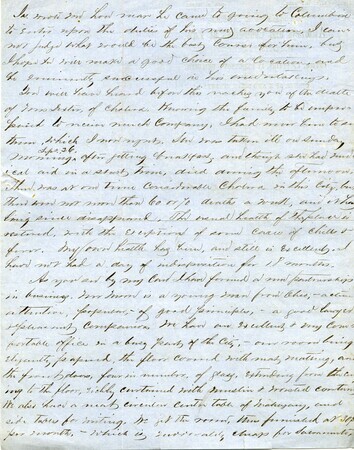 me how near he came to going to Columbia
to enter upon the duties of his new avocation, I can
not judge what would be the best course for him, but
I hope he will make a good choice of a location, and
be eminently successful in his undertakings.
You will have heard before this reaches you of the death
of Mrs. of Cholera. Knowing the family to be
to receive much company, I had
which I now regret. She was taken ill on Sunday
Morning, after getting breakfast, and though she had
aid in a short time, died during the afternoon.
There was at one time considerable Cholera in this City, but
there were not more than 60 or 70 deaths a week, and it has
long since disappeared. The usual health of the place is
restored, with the exception of some cases of Chills &
fever. My own health has been, and still is excellent. I
have not had a day of indisposition for 18 months.
As you see by my Card I have formed a new partnership
in business. Mr. Moore is a young man from Ohio, - active
attentive, - of good principles, - a good lawyer
& pleasant Companion. We have an excellent & very Com-
fortable office in a busy part of the City, - our room being
elegantly papered, the floor covered with matting, and
the four in number, of glass, extending from the ceil-
ing to the floor, richly curtained with muslin & worsted curtains.
We also have a neat, circular center table of Mahogany, and
side tables for writing. We get the room, thus furnished at
per month, - which is moderately cheap for Sacramento,